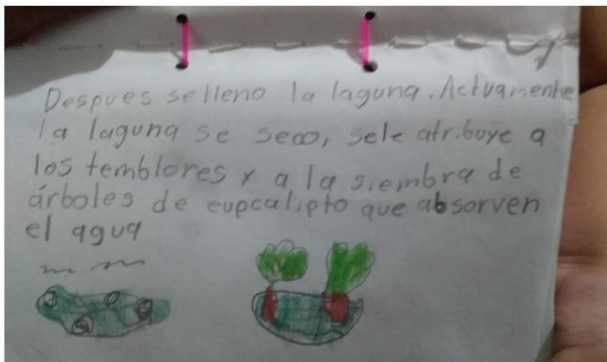 Despues se lleno la laguna. Actuamente
la laguna se seco, sele atribuye a
los temblores y a la siembra de
árboles de eupcalipto que absorven
el agua